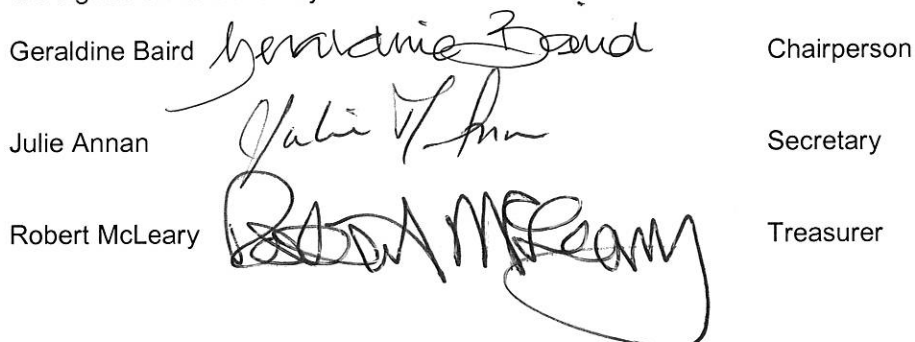 Geraldine Baird Geraldine Baird Chairperson
Julie Annan Julie Annan Secretary
Robert McLeary Robert McLeary Treasurer